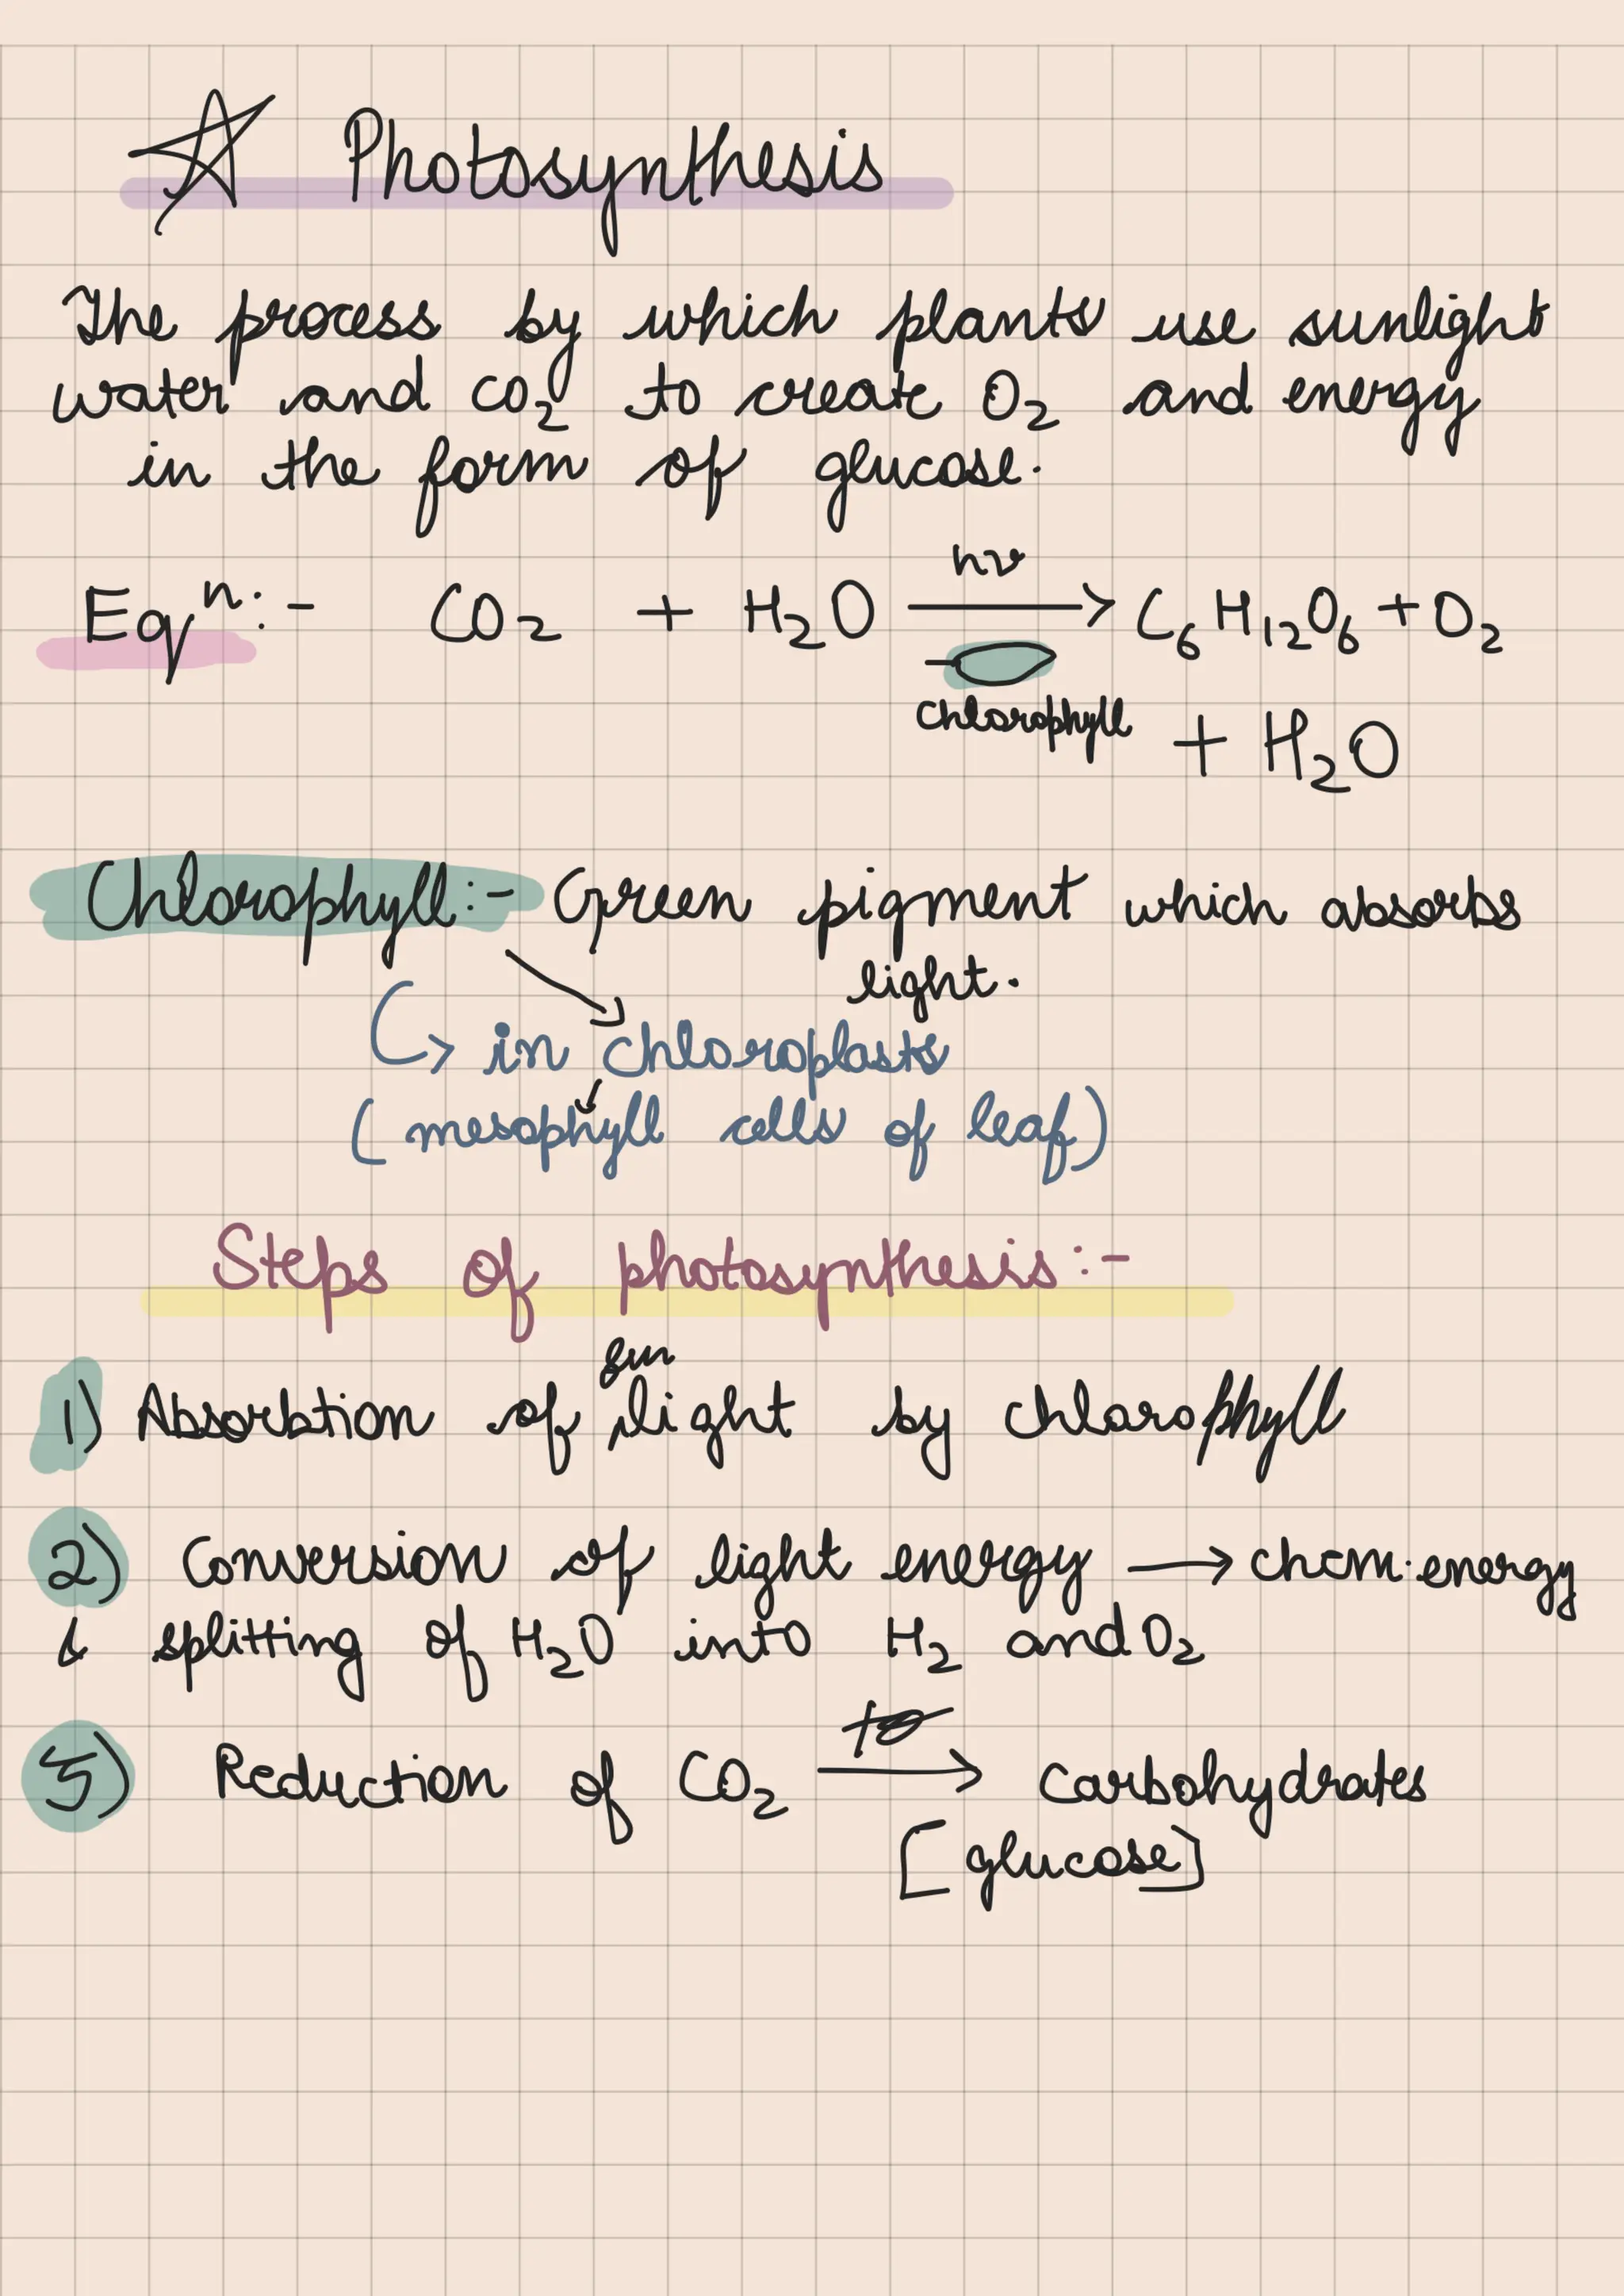 Photosynthesis
The process by which plants use sunlight
water and CO₂ to create O₂ and energy
in the form of glucose.
Eqⁿ:- CO₂ + H₂O hν → C₆H₁₂O₆ + O₂
chlorophyll + H₂O
Chlorophyll:- Green pigment which absorbs
light.
↳ in chloroplasts
(mesophyll cells of leaf)
Steps of photosynthesis:-
1) Absorbtion of sunlight by chlorophyll
2) Conversion of light energy → chem. energy
& splitting of H₂O into H₂ and O₂
3) Reduction of CO₂ → carbohydrates
[glucose]